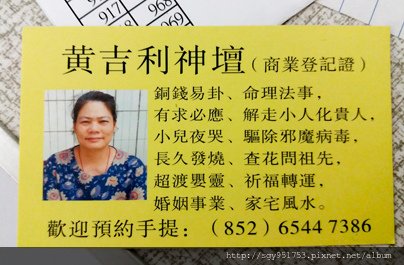 917
968
968
969
黄吉利神壇(商業登記證)
銅錢易卦、命理法事,
有求必應、解走小人化貴人,
小兒夜哭、驅除邪魔病毒,
長久發燒、查花問祖先,
超渡嬰靈、祈福轉運,
婚姻事業、家宅風水。
歡迎預約手提:(852) 6544 7386
http://sgy951753.pixnet.net/album